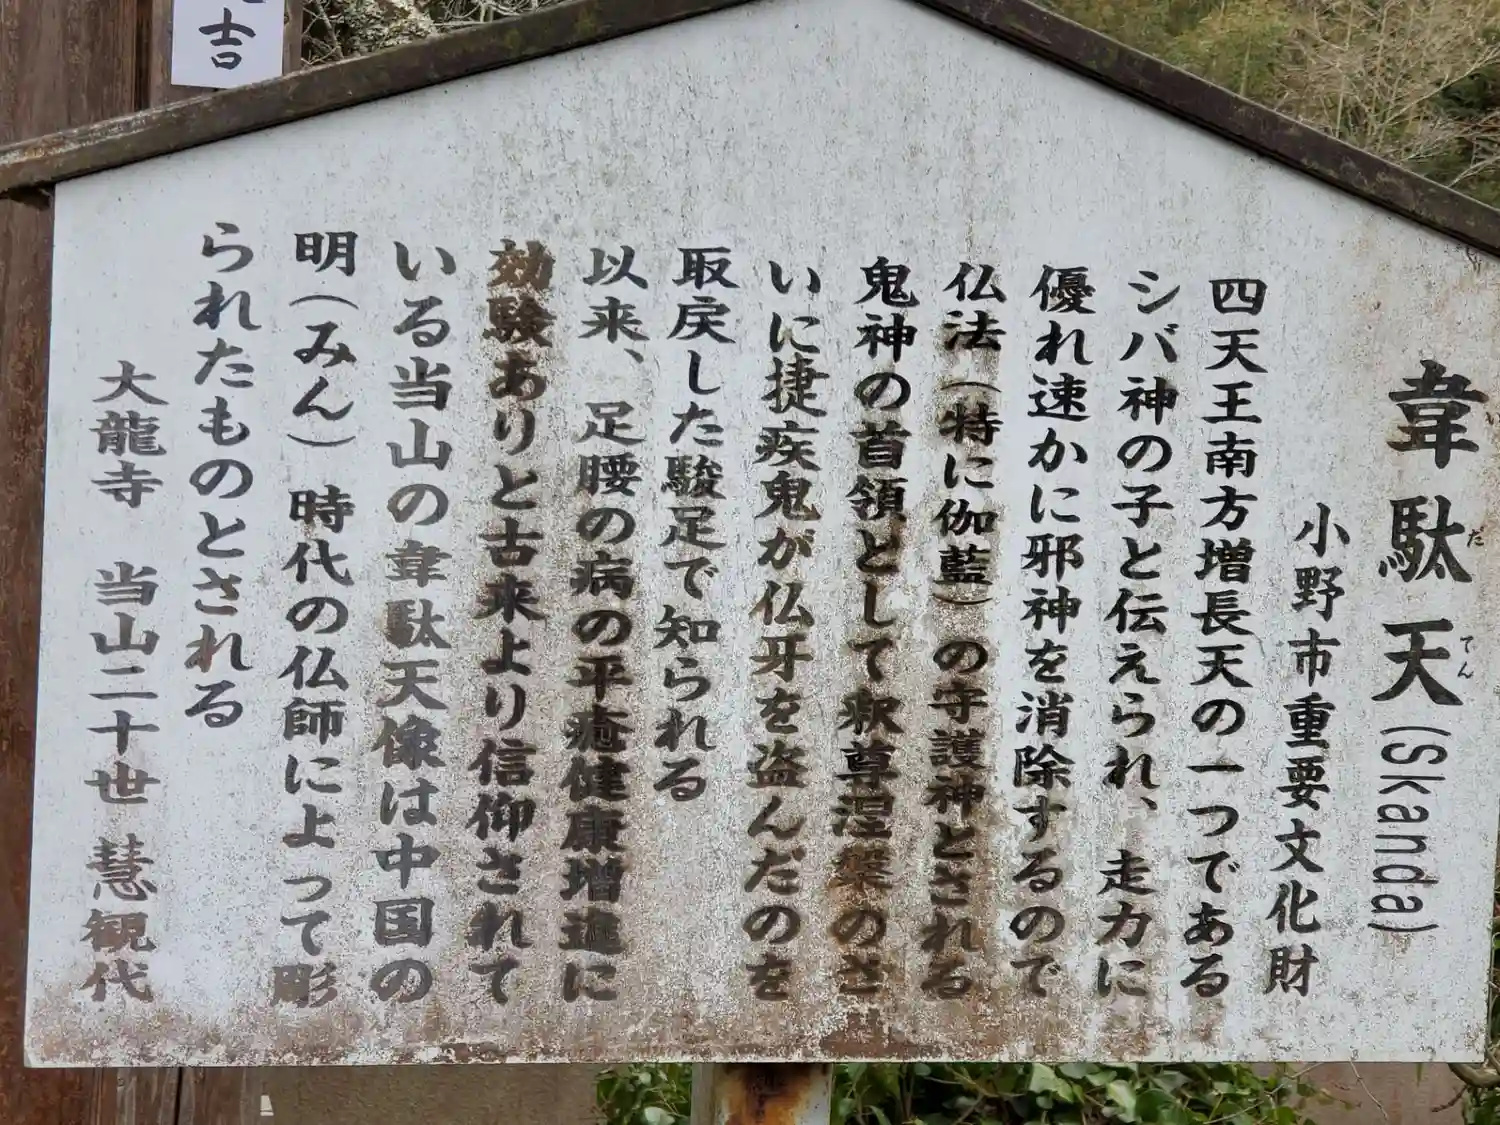 韋駄天(Skanda)
小野市重要文化財
四天王南方増長天の一つである
シバ神の子と伝えられ、走力に
優れ速かに邪神を消除するので
仏法(特に伽藍)の守護神とされる
鬼神の首領として釈尊涅槃のさ
いに捷疾鬼が仏牙を盗んだのを
取戻した駿足で知られる
以来、足腰の病の平癒健康増進に
効験ありと古来より信仰されて
いる当山の韋駄天像は中国の
明(みん)時代の仏師によって彫
られたものとされる
大龍寺 当山二十世 慧観代
吉